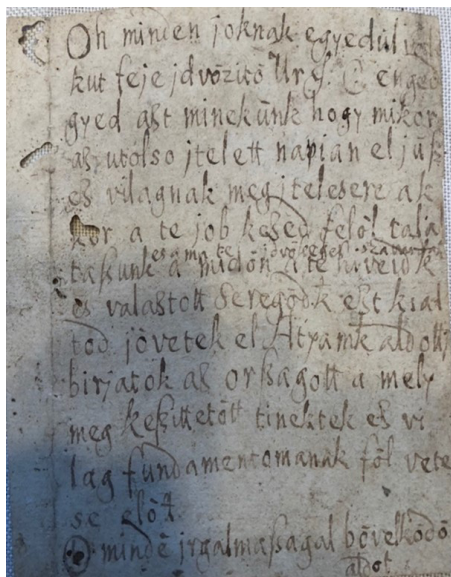 Oh minden joknak egyedül
kut feje jdvözitö Ur enged
gyed ast minekünk hogy mikor
as utolso jtelett napian el jüß
es vilagnak meg jtelesere ak
kor a te job kesed felöl talal
es ama te jdvösseges
taßunk a midön a te hiveidk
es valastott Seregödk ekt
tod jövetek el Atyamk aldotti
birjatok as orßagott a mely
meg keßittetött tinektek es vi
lag fundamentomanak föl vete
se elött
O minde jrgalmaßagal bövelködö
aldot